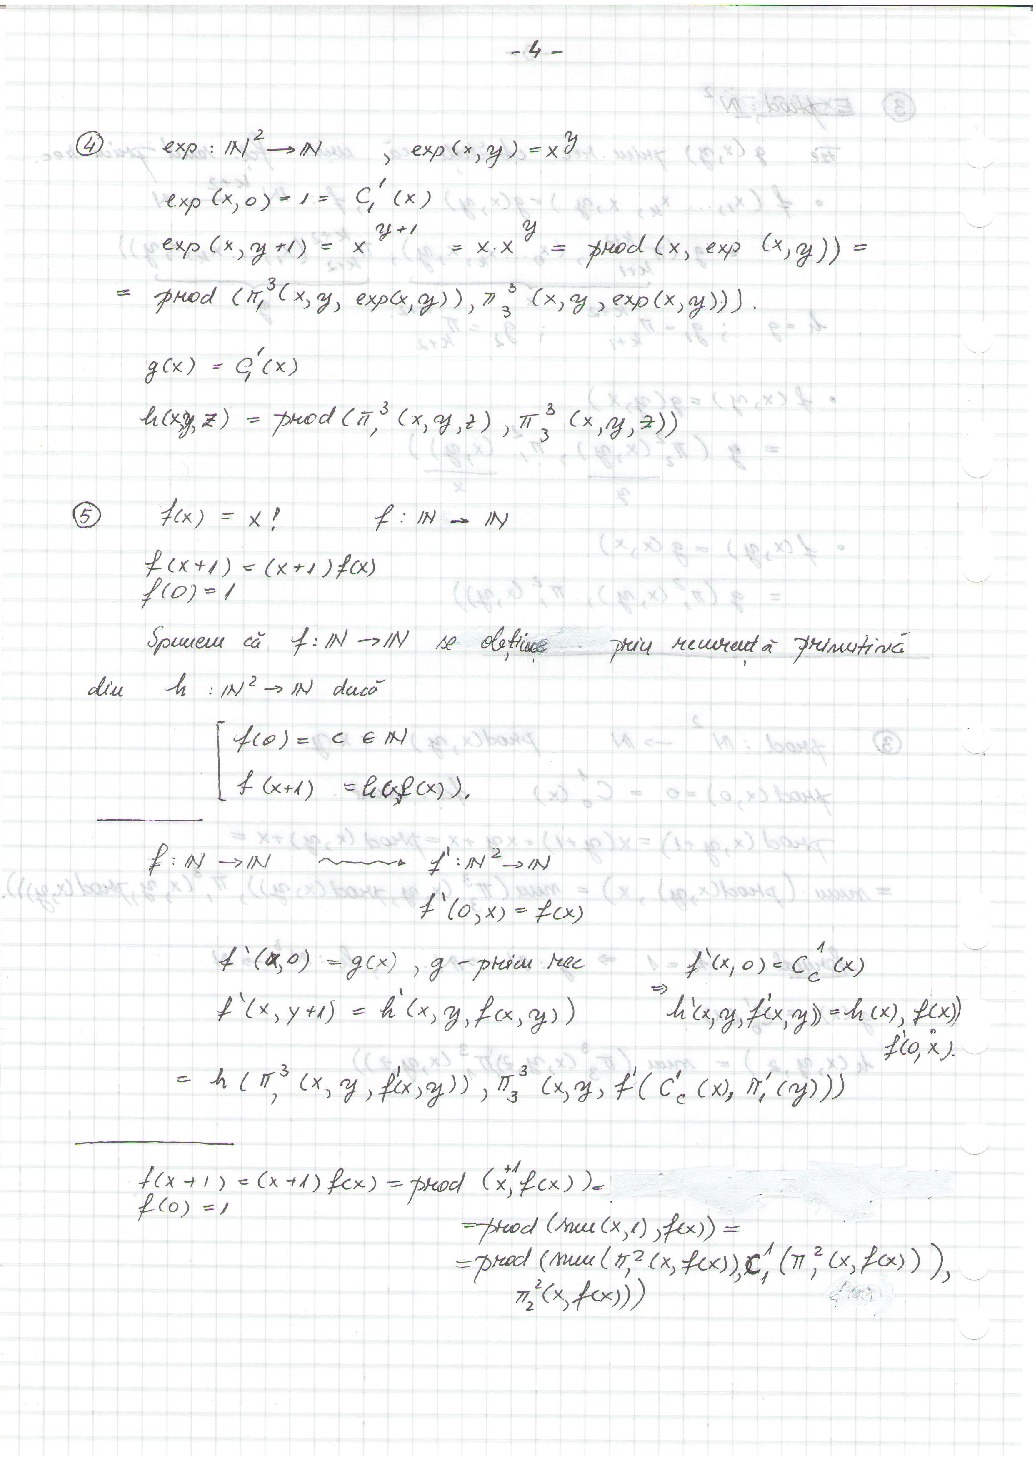 - 4 -
④ exp : ℕ² → ℕ , exp(x,y) = x^y
exp(x,0) = 1 = C₁¹(x)
exp(x,y+1) = x^{y+1} = x·x^y = prod(x, exp(x,y)) =
= prod(π₁³(x,y,exp(x,y)), π₃³(x,y,exp(x,y))).
g(x) = C₁¹(x)
h(x,y,z) = prod(π₁³(x,y,z), π₃³(x,y,z))
⑤ f(x) = x! f : ℕ → ℕ
f(x+1) = (x+1)f(x)
f(0) = 1
Spunem că f : ℕ → ℕ se obține prin recurență primitivă
din h : ℕ² → ℕ dacă
f(0) = c ∈ ℕ
f(x+1) = h(x,f(x)).
f : ℕ → ℕ ⇝ f' : ℕ² → ℕ
f'(0,x) = f(x)
f'(x,0) = g(x), g - prim rec f'(x,0) = C_c¹(x)
f'(x,y+1) = h'(x,y,f(x,y)) ⇒ h'(x,y,f'(x,y)) = h(x), f(x))
f'(0,x).
= h(π₁³(x,y,f'(x,y)), π₃³(x,y,f'(C_c¹(x), π₁¹(y)))
f(x+1) = (x+1)f(x) = prod(x+1, f(x)) =
f(0) = 1
= prod(sum(x,1), f(x)) =
= prod(sum(π₁²(x,f(x)), C₁¹(π₁²(x,f(x))),
π₂²(x,f(x)))